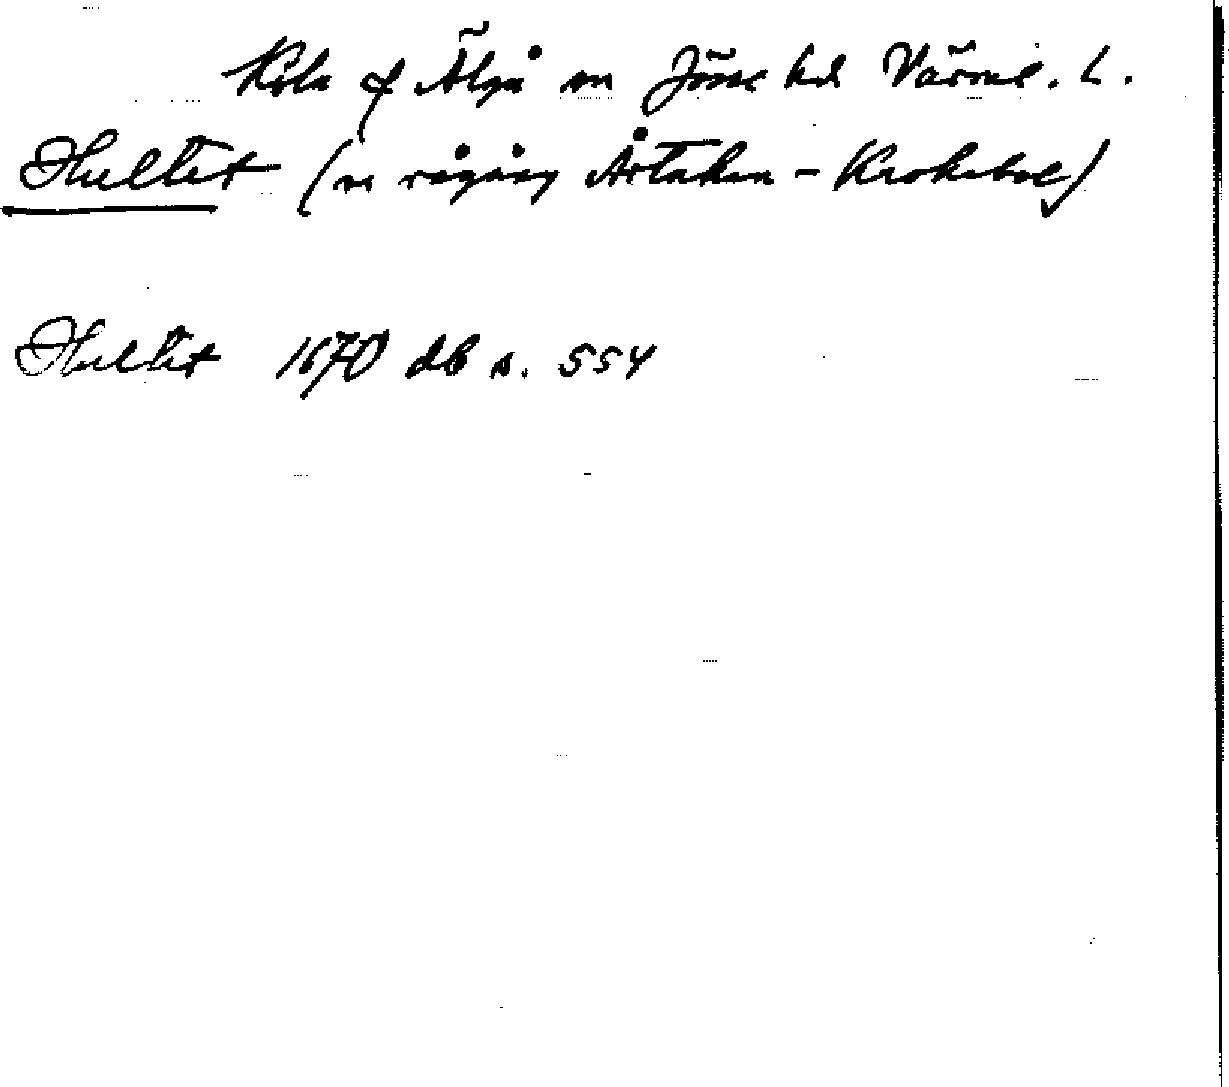 Köla o Älgå sn Jösse hd Värml. l.
Hultet (i rågång Årtaken - Krokebol)
Hultet 1670 db s. 554